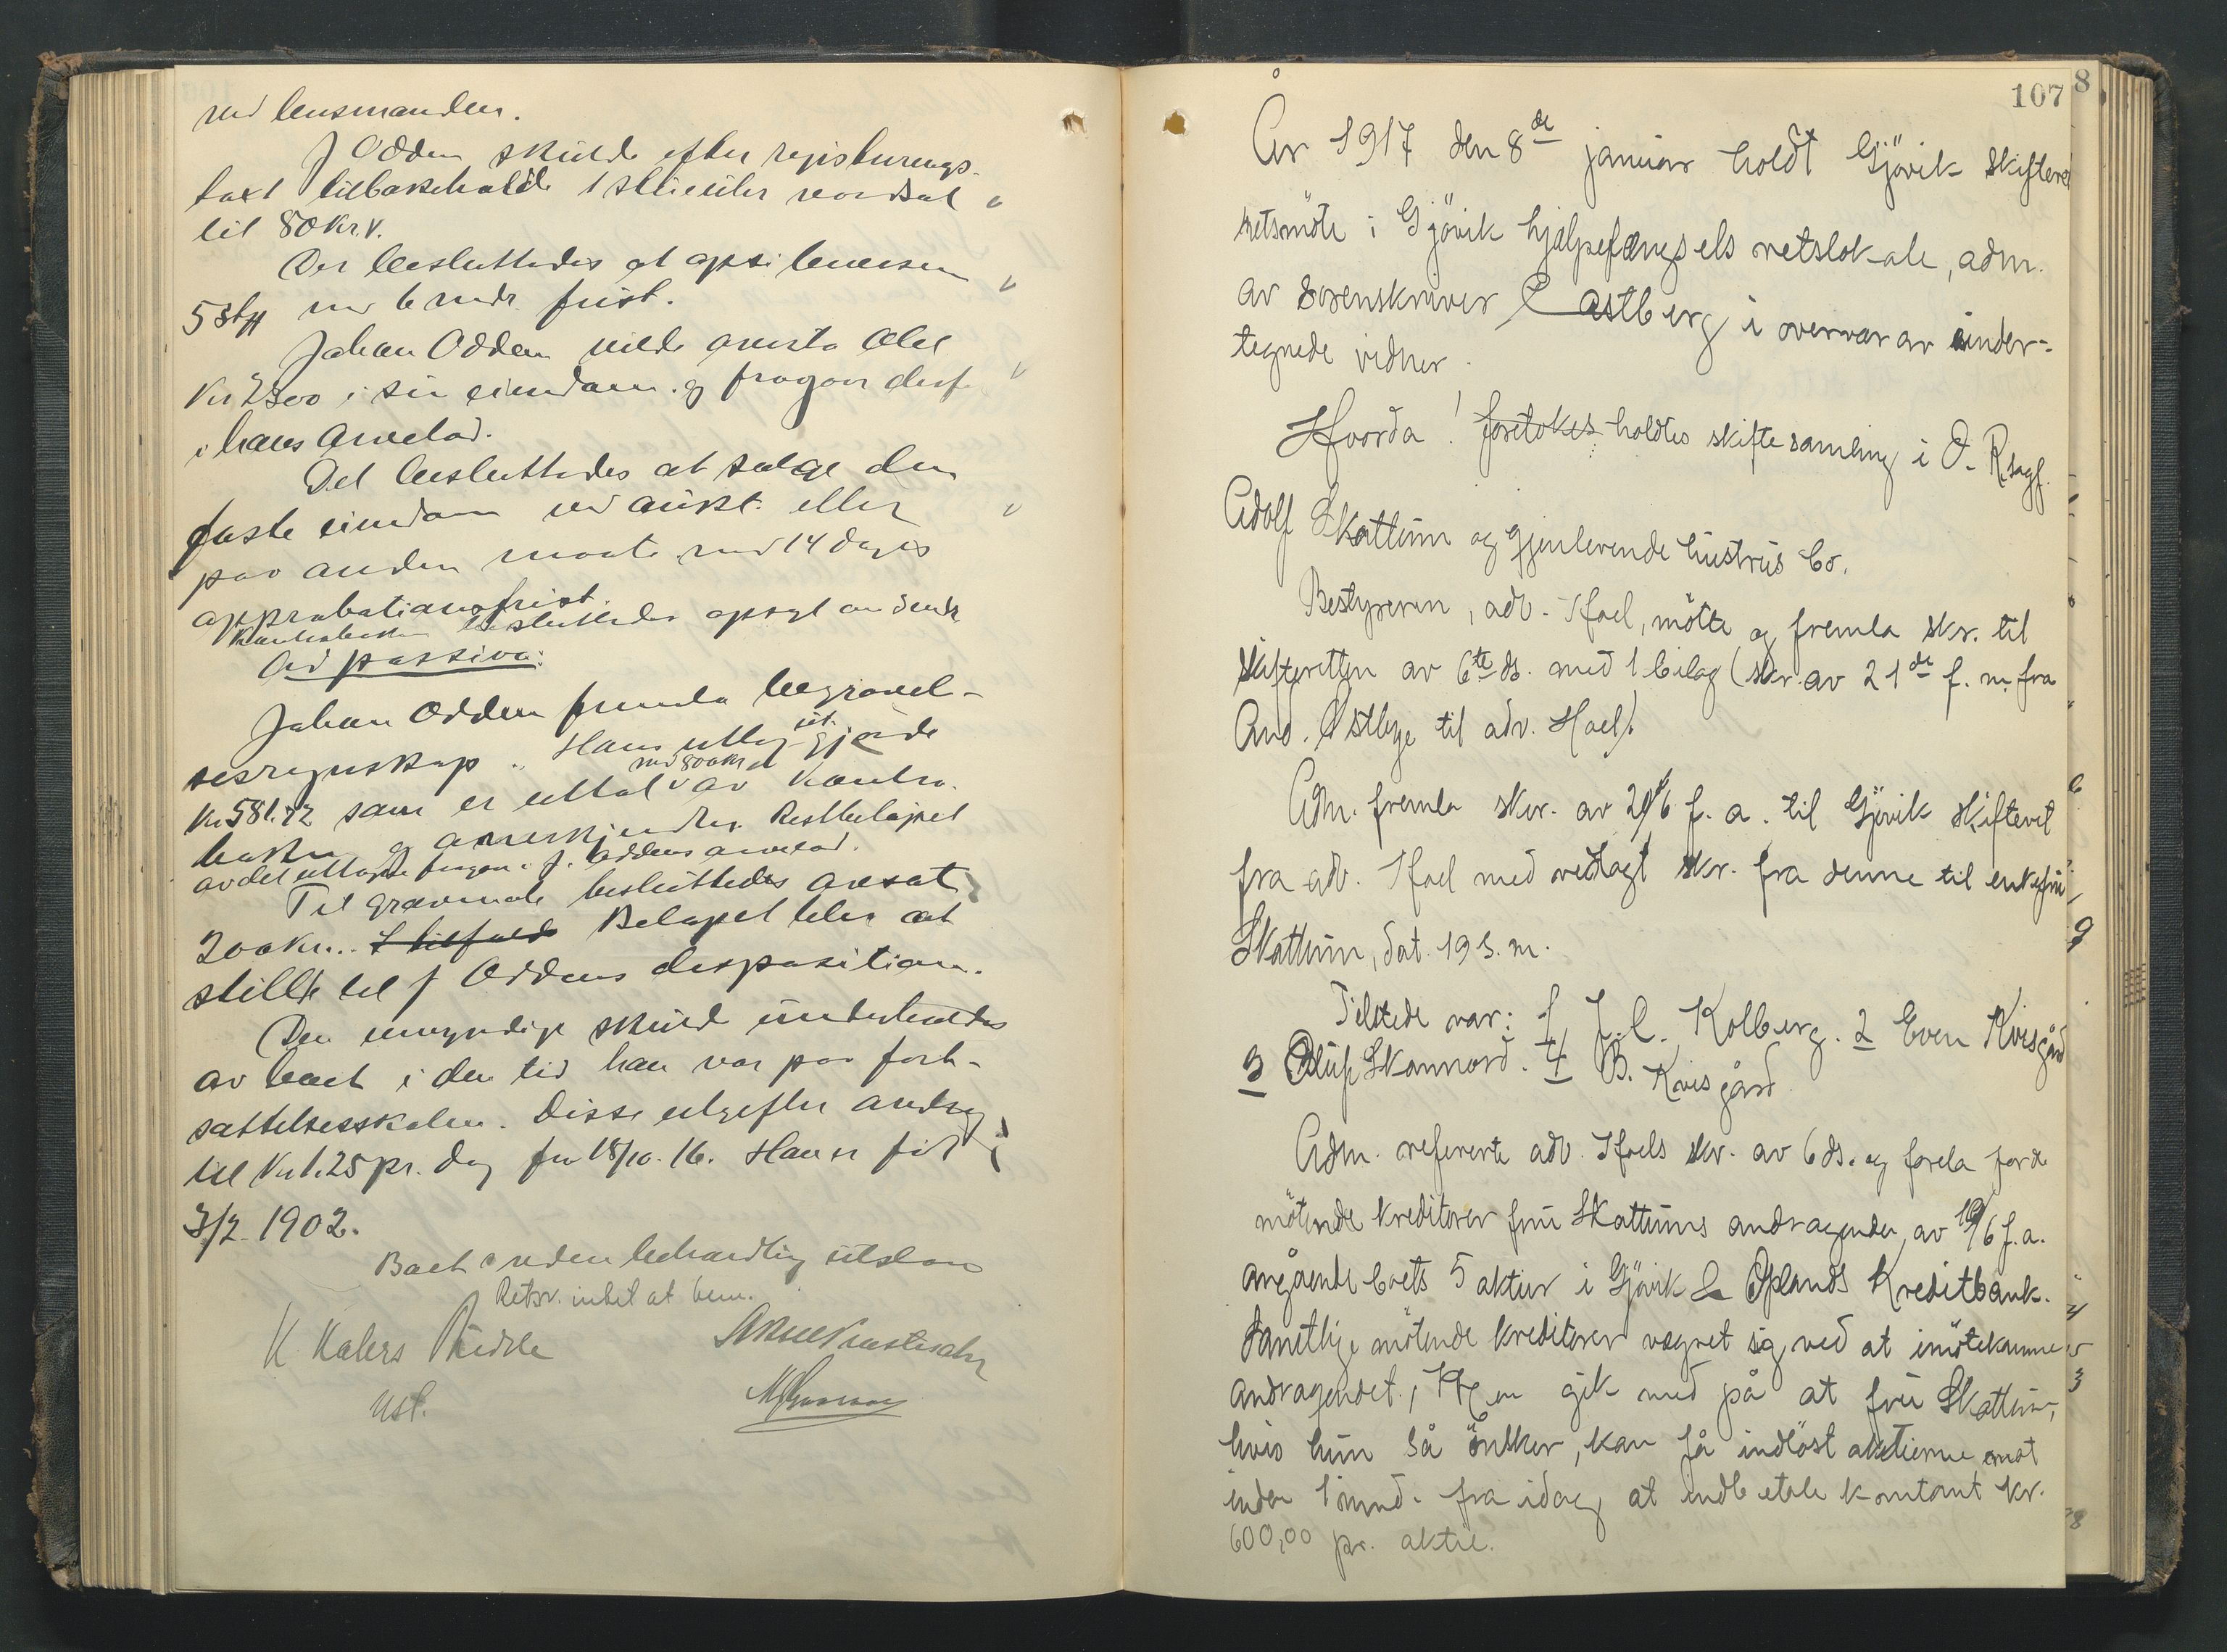 ved lensmanden.
J Odden skulde efter registrerings-
taxt tilbakeholde 1 vordsat
til 80 kr. v.
Det besluttedes at opsi leveren
5 stpl med 6 mdr frist.
Johan Odden vilde
Kr 2300 i sin eiendom og fragaar derf
i hans arvelod.
Det besluttedes at sælge den
faste eiendom ved aukt. eller
paa anden maate med 14 dages
approbationsfrist.
besluttedes opsagt
Ad passiva:
Johan Odden fremla begravel-
sesregnskap. Hans utlæg ut- gjorde
Kr 581.72 som er uttat med 800 kr av Kontra-
boken og anerkjendtes. Restbeløpet
av det uttagte fragaar i J. Oddens arvelod.
Til gravmæle besluttedes avsat
200 kr. I tilfælde Beløpet blev at
stille til J Oddens disposition.
Den umyndige skulde underholdes
av boet i den tid han var paa fort-
sættelsesskolen. Disse utgifter androg
til Kr 1.25 pr. dag fra 18/10. 16. Han er fød
3/2 1902.
Boet under behandling utslaar
Retsv. intet at bem.
K Kalers
Ust.
107
8
År 1917 den 8de januar holdt Gjövik skifteret
retsmöte i Gjövik hjælpefængsels retslokale, adm.
av sorenskriver Castberg i overvær av under-
tegnede vidner.
Hvorda! foretokes holdtes skiftesamling i O. R. sagf.
Adolf Skattum og gjenlevende hustrus bo.
Bestyreren, adv. Hoel, mötte og fremla skr. til
skifteretten av 6te ds. med 1 bilag (skr. av 21de f. m. fra
And. Østbye til adv. Hoel).
Adm. fremla skr. av 20/6 f. a. til Gjövik skifteret
fra adv. Hoel med vedlagt skr. fra denne til enkefru
Skattum, dat. 19 s. m.
Tilstede var: 1 J. C. Kolberg. 2 Even Kvisgård
3 Oluf Skonnord. 4 B. Kvisgård.
Adm. refererte adv. Hoels skr. av 6 ds. og forela for de
mötende kreditorer fru Skattums andragende av 19/6 f. a.
angående boets 5 aktier i Gjövik & Oplands Kreditbank.
Samtlige mötende kreditorer vægret sig ved at imötekomme
andragendet, men gik med på at fru Skattum,
hvis hun så önsker, kan få indlöst aktierne mot
inden 1 mnd. fra idag at indbetale kontant kr.
600,00 pr. aktie.